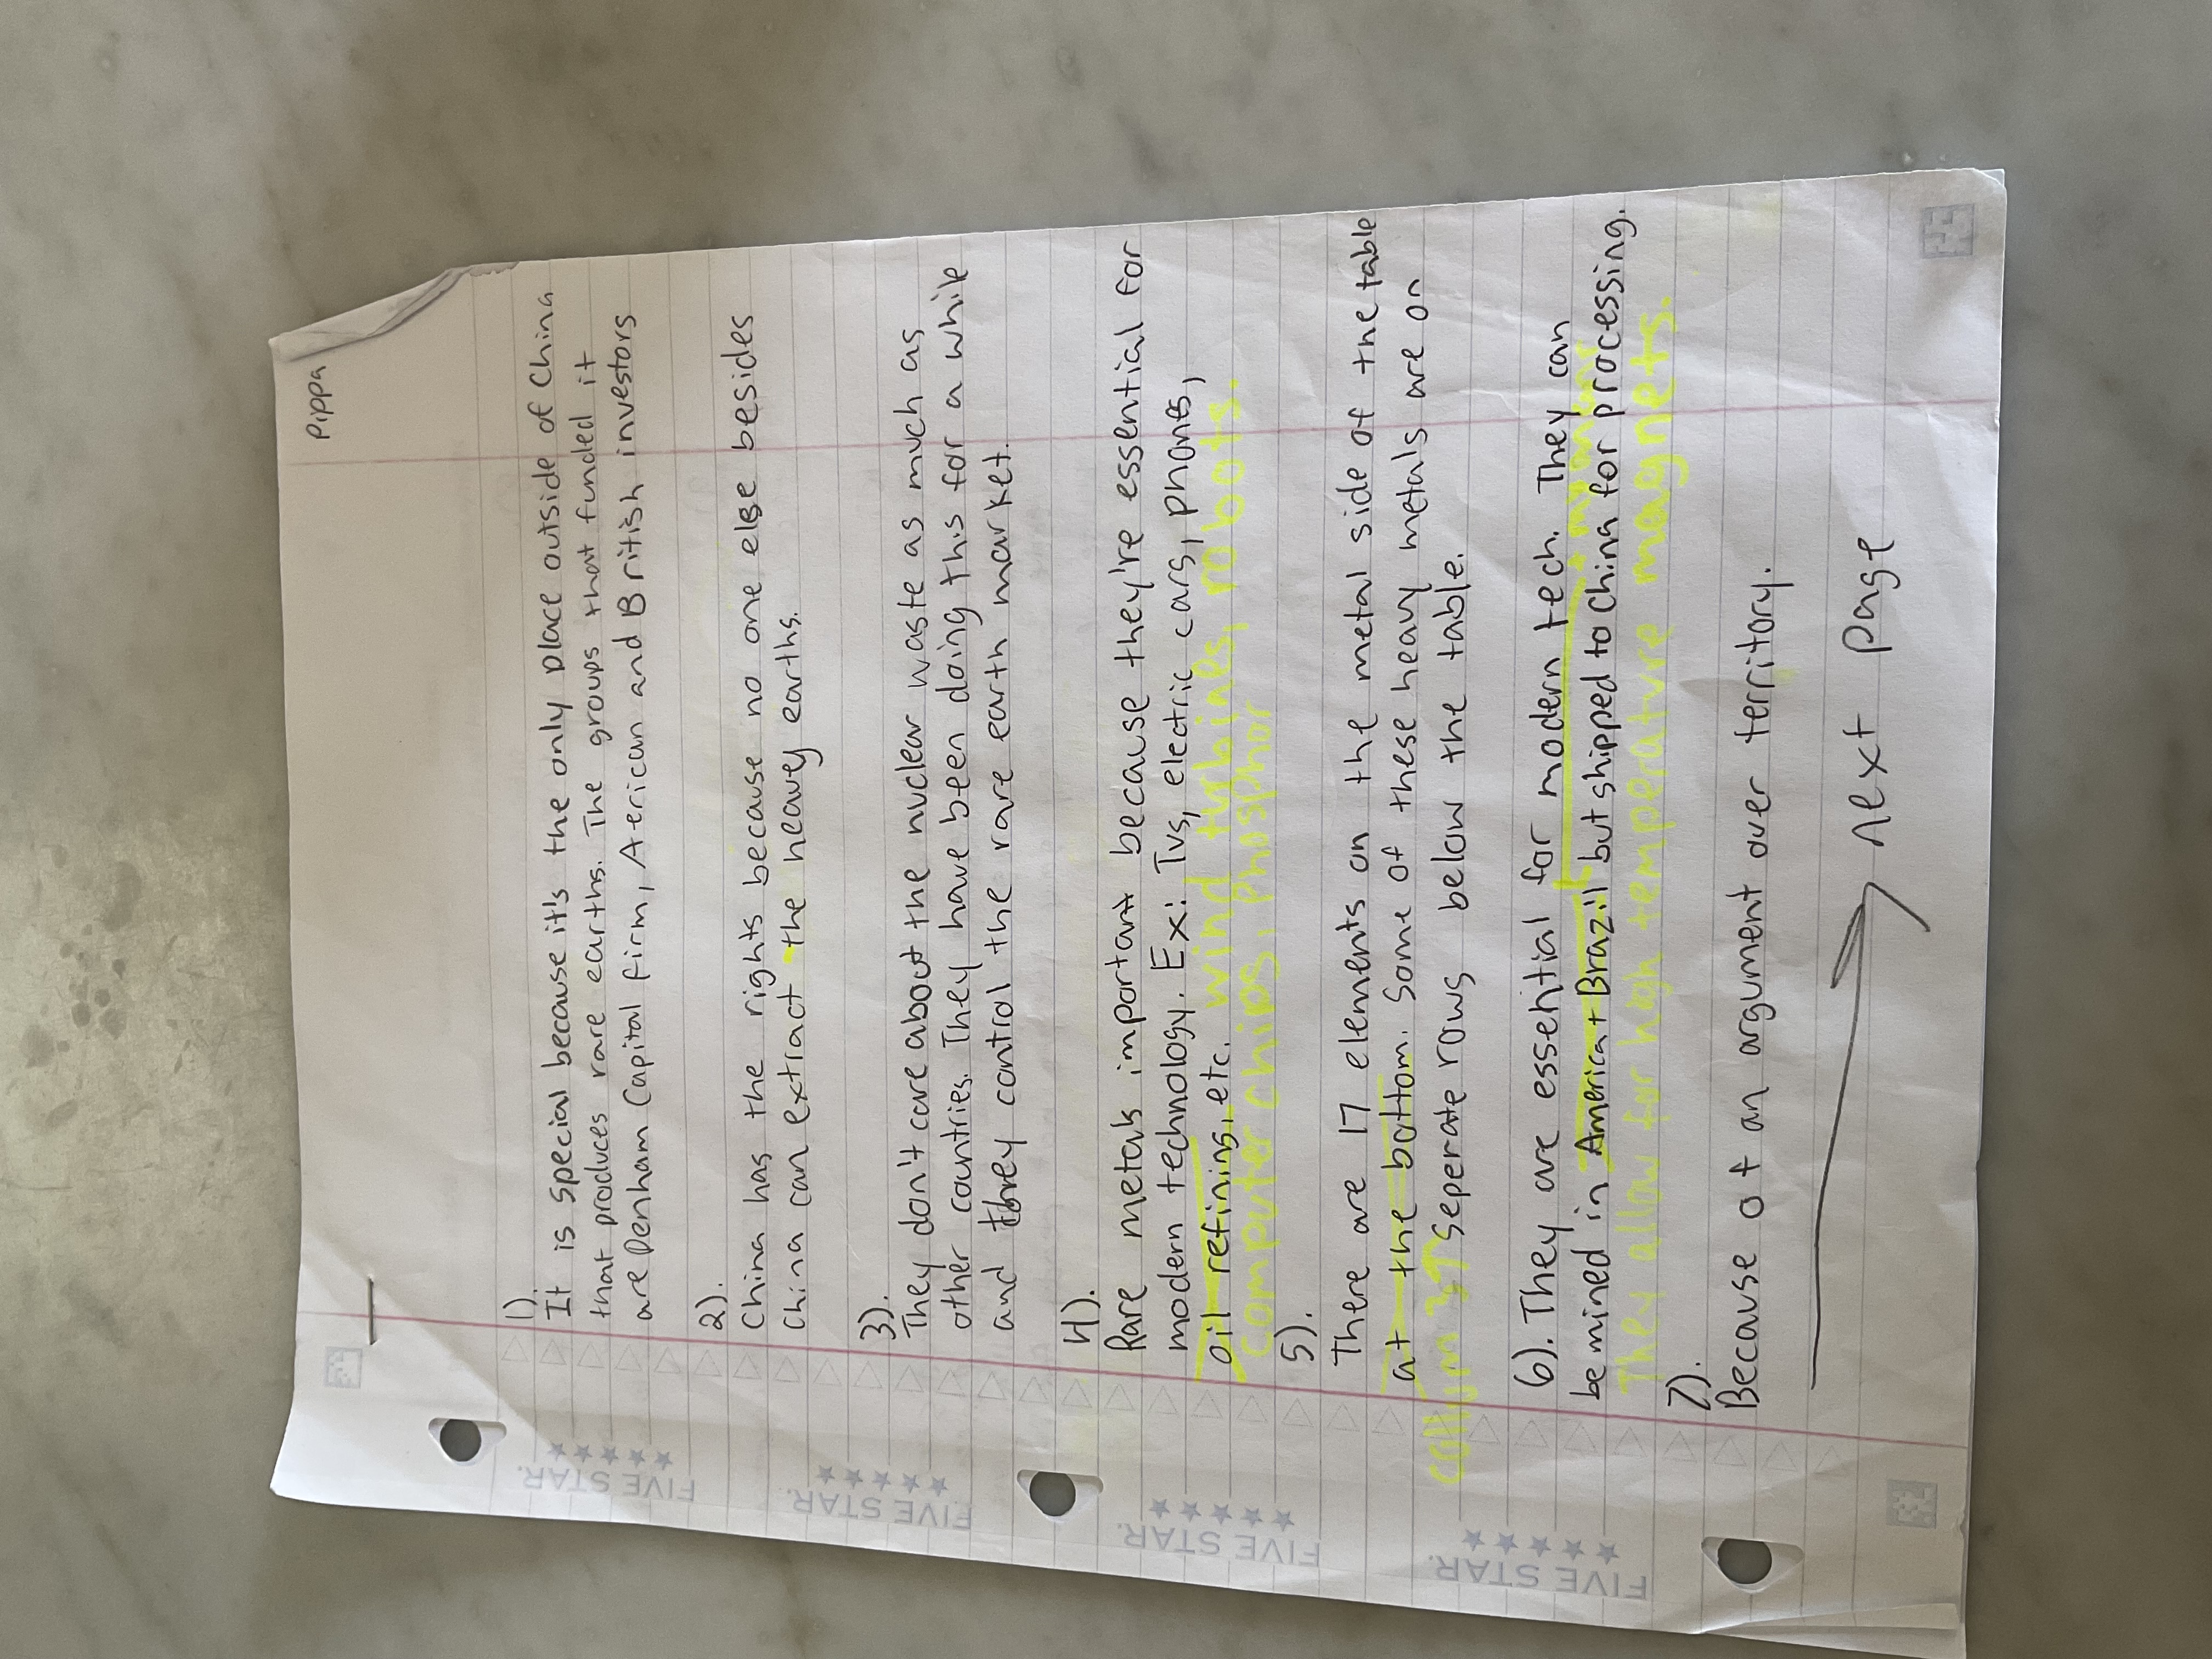 Pippa
1).
It is special because it's the only place outside of China
that produces rare earths. The groups that funded it
are Denham Capital firm, Aerican and British investors
2).
China has the rights because no one else besides
China can extract the heavey earths.
3).
They don't care about the nuclear waste as much as
other countries. They have been doing this for a while
and they control the rare earth market.
4).
Rare metals important because they're essential for
modern technology. Ex: Tvs, electric cars, phones,
oil refining, etc. wind turbines, robots.
computer chips, phosphor
5).
There are 17 elements on the metal side of the table
at the bottom. Some of these heavy metals are on
collum 3↑ seperate rows below the table.
6). They are essential for modern tech. They can
be mined in America + Brazil but shipped to China for processing.
They allow for high temperature magnets.
7).
Because of an argument over territory.
→ next page
FIVE STAR.
★★★★★
FIVE STAR.
★★★★★
FIVE STAR.
★★★★★
FIVE STAR.
★★★★★